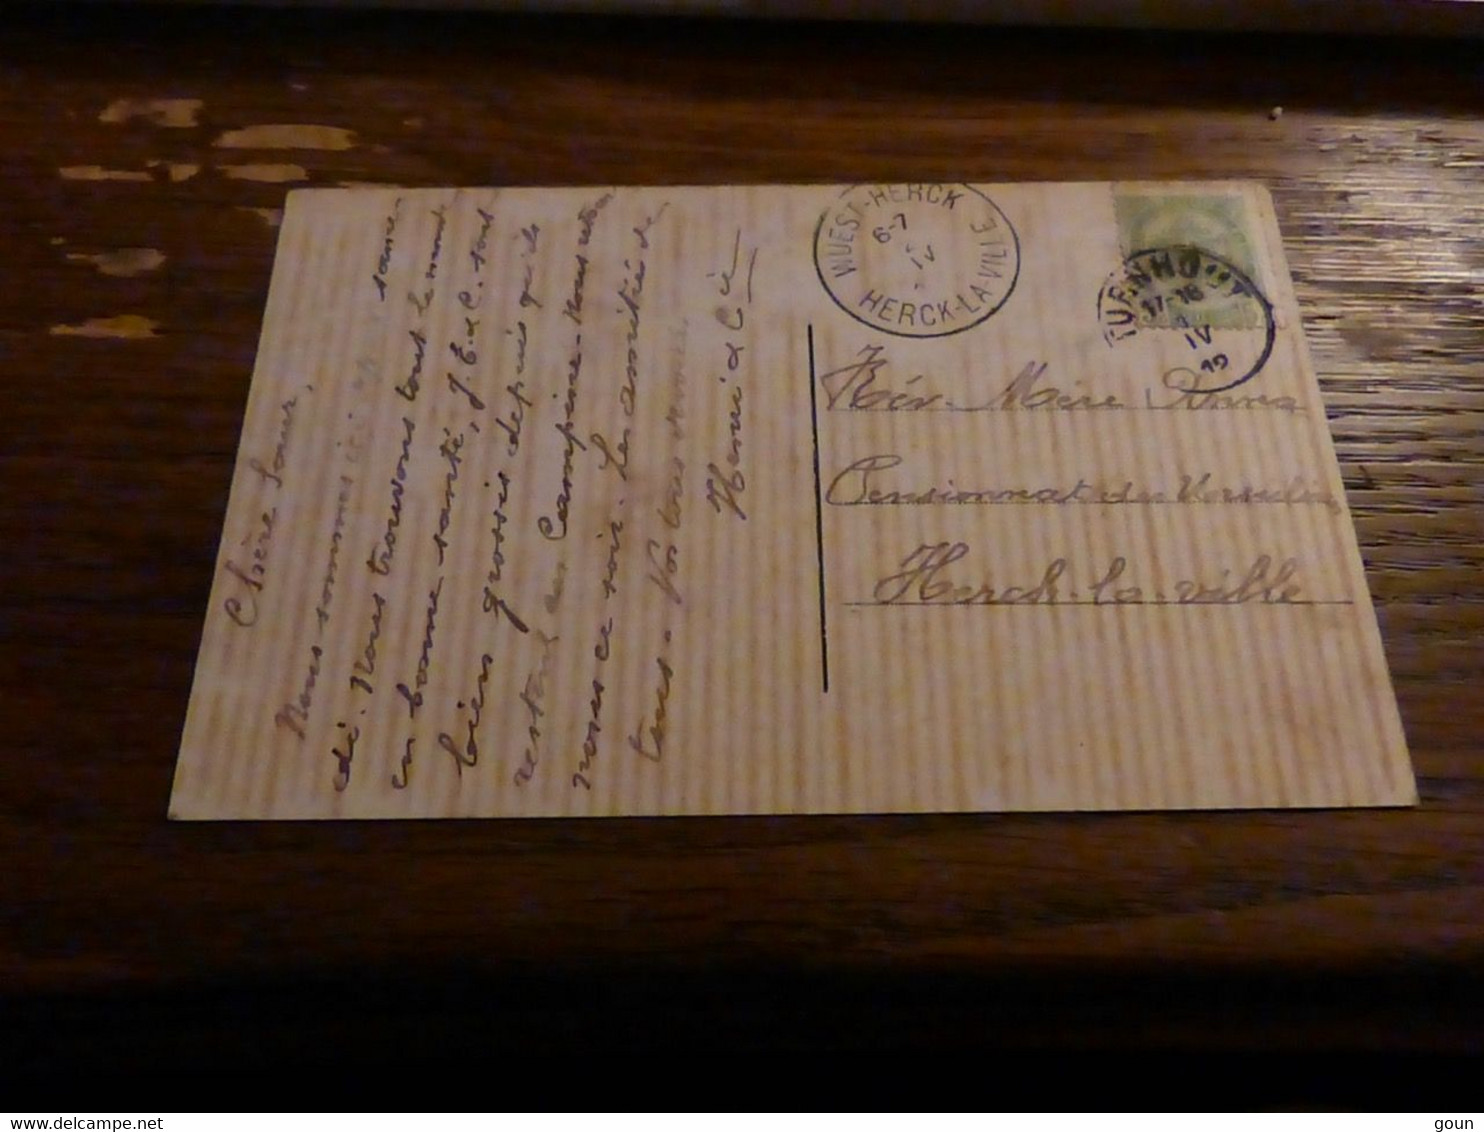 Chère Sœur,
Nous sommes ici same
di. Nous trouvons tout le monde
en bonne santé, J. E. & C. sont
bien grossis depuis qu'ils
restent en Campine. Nous rentre
rons ce soir. Les amitiés de
tous. Vos tous dévoués
Henri & Cie
WUEST-HERCK
6-7
IV
HERCK-LA-VILLE
TURNHOUT
17-18
IV
Rév. Mère Anna
Pensionnat des Ursulines
Herck-la-ville
delcampe.net
goun